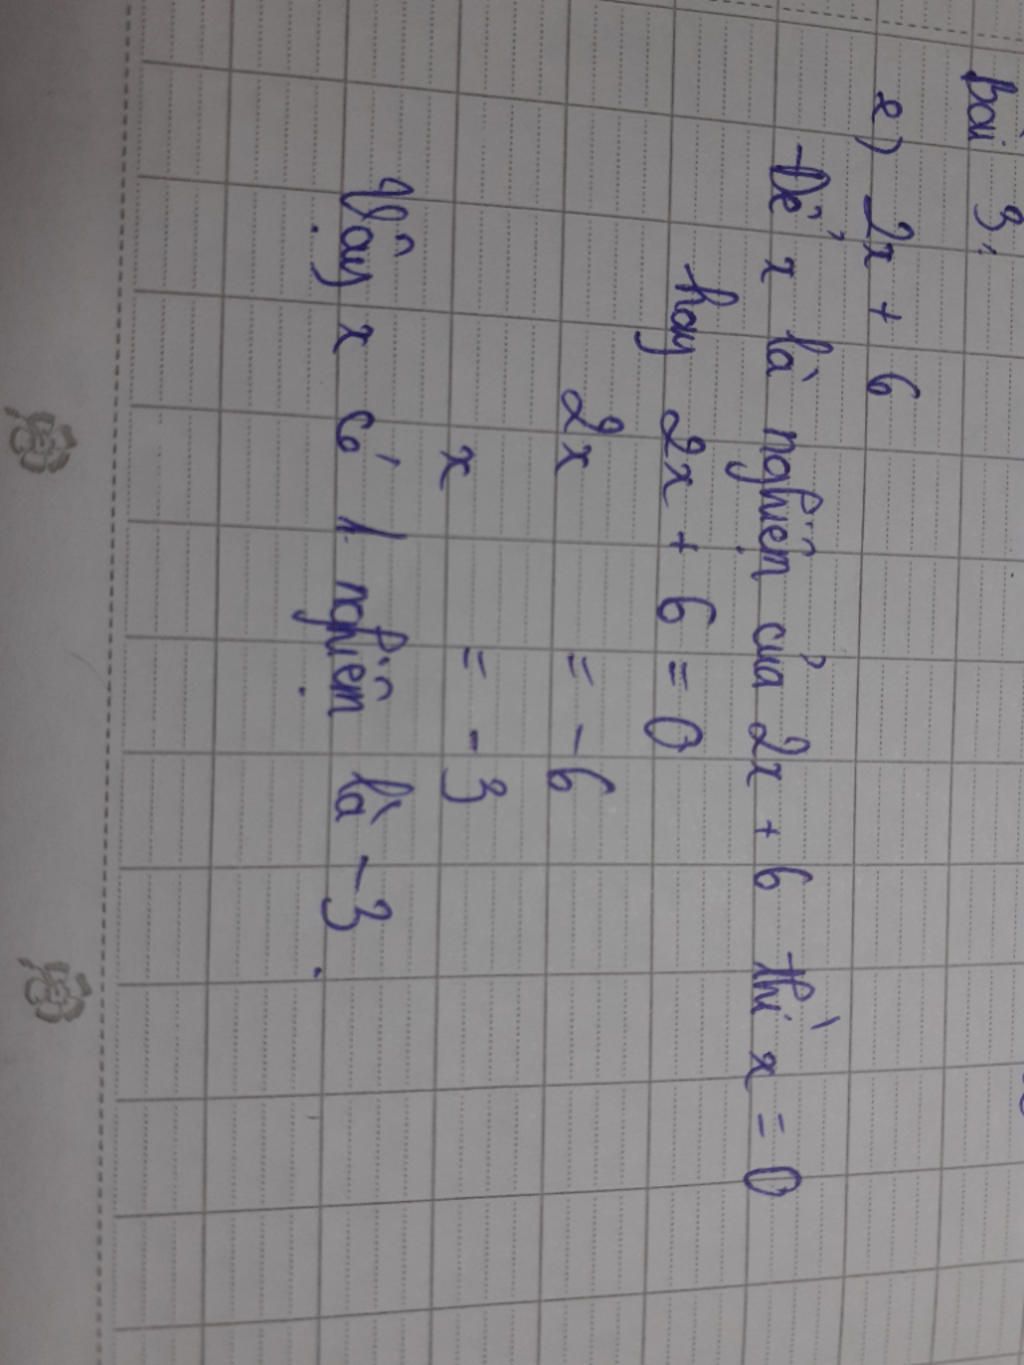 Bài 9,
e) 2x + 6
Để x là nghiệm của 2x + 6 thì x = 0
hay 2x + 6 = 0
2x = - 6
x = - 3
Vậy x có 1 nghiệm là -3.